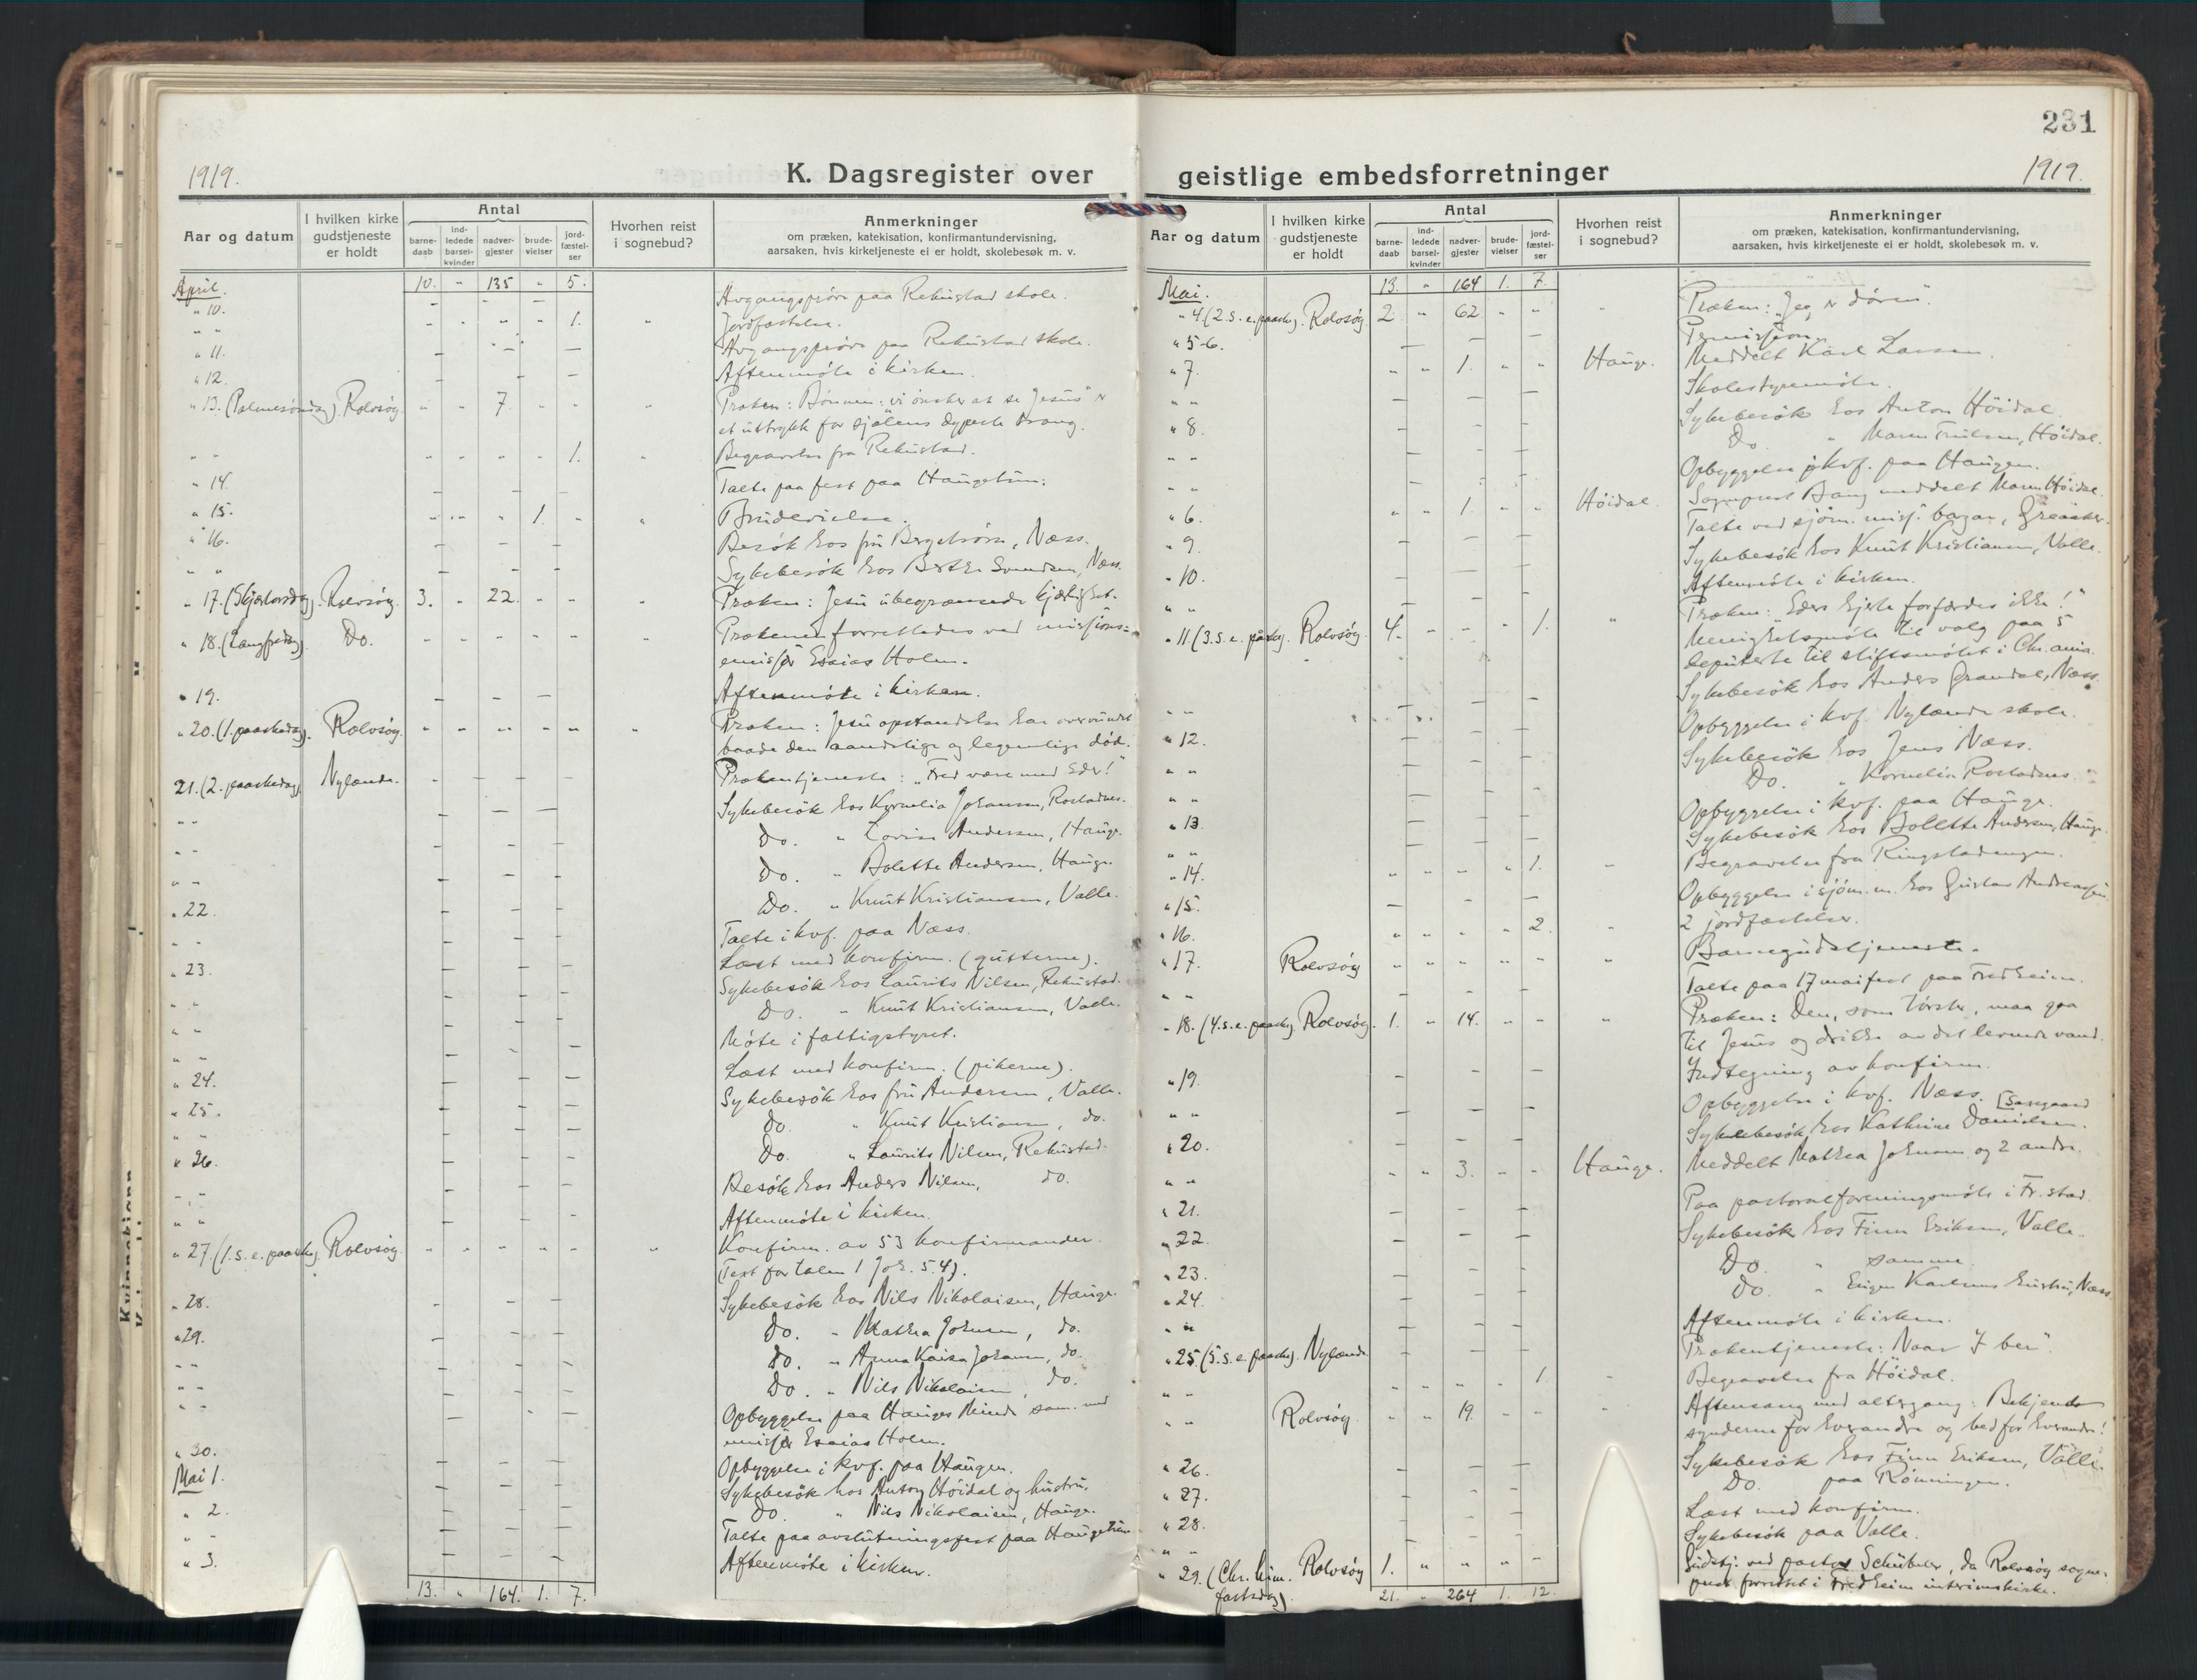 231
1919.
K. Dagsregister over geistlige embedsforretninger
1919.
Aar og datum
I hvilken kirke gudstjeneste er holdt
Antal
barne-daab
ind-ledede barsel-kvinder
nadver-gjester
brude-vielser
jord-fæstel-ser
Hvorhen reist i sognebud?
Anmerkninger
om præken, katekisation, konfirmantundervisning,
aarsaken, hvis kirketjeneste ei er holdt, skolebesøk m. v.
April. 10. " 135 " 5.
" 10. Avgangsprøve paa Rekustad skole.
" " 1. Jordfæstelse.
" 11. Avgangsprøve paa Rekustad skole.
" 12. Aftenmöte i kirken.
" 13. (Palmesøndag). Rolvsøy 7. Præken: Bönnen: vi önsker at se Jesus" er
et uttrykk for sjælens dypeste trang.
" " 1. Begravelse fra Rekustad.
" 14. Talte paa fest paa Haugetun.
" 15. 1. Brudevielse.
" 16. Besök hos fru Bergström, Næss.
" " Sykebesök hos Berthe Svendsen, Næss.
" 17. (Skjærtorsdag). Rolvsøy. 3. " 22. Præken: Jesu ubegrænsede kjærlighet.
" 18. (Langfredag). Do. Prækenen forrettedes ved missions=
emissær Esaias Holm.
" 19. Aftenmöte i kirken.
" 20. (1. paaskedag). Rolvsøy. Præken: Jesu opstandelse har overvundet
baade den aandelige og legemlige död.
21. (2. paaskedag) Nylænde. Prækentjeneste: "Fred være med Eder!"
" " Sykebesök hos Kornelia Johansen, Rostadnes.
" " Do. " Lovise Andersen, Hauge.
" " Do. " Bolette Andersen, Hauge.
" 22. Do. " Knut Kristiansen, Valle.
" " Talte i kvf. paa Næss.
" 23. Læst med konfirm. (gutterne).
" " Sykebesök hos Laurits Nilsen, Rekustad.
" " Do. " Knut Kristiansen, Valle.
" " Möte i fattigstyret.
" 24. Læst med konfirm. (pikerne).
" 25. Sykebesök hos fru Andersen, Valle.
" " Do. " Knut Kristiansen, do.
" 26. Do. " Laurits Nilsen, Rekustad.
" " Besök hos Anders Nilsen, do.
" " Aftenmöte i kirken.
" 27. (1. s. e. paaske). Rolvsøy. Konfirm. av 53 konfirmander.
(Text for talen 1 Joh. 5.4).
" 28. Sykebesök hos Nils Nikolaisen, Hauge.
" 29. Do. " Mathea Johnsen, do.
" " Do. " Anna Kaisa Johansen, do.
" " Do. " Nils Nikolaisen, do.
" " Opbyggelse paa Hauges Minde sam. med
emissær Esaias Holm.
" 30. Opbyggelse i kvf. paa Haugen.
Mai 1. Sykebesök hos Anton Höidal og hustru.
" 2. Do. " Nils Nikolaisen, Hauge.
" " Talte paa avslutningsfest paa Haugetun.
" 3. Aftenmöte i kirken.
13. " 164. 1. 7.
Aar og datum
I hvilken kirke gudstjeneste er holdt
Antal
barne-daab
ind-ledede barsel-kvinder
nadver-gjester
brude-vielser
jord-fæstel-ser
Hvorhen reist i sognebud?
Anmerkninger
om præken, katekisation, konfirmantundervisning,
aarsaken, hvis kirketjeneste ei er holdt, skolebesøk m. v.
Mai. 13. " 164 1. 7.
" 4. (2. s. e. paaske). Rolvsøy 2. " 62 Præken: "Jeg er dören".
" 5-6. Permission.
" 7. 1. Hauge. Meddelt Karl Larsen.
" " Skolestyremöte.
" 8. Sykebesök hos Anton Höidal.
" " Do. " Maren Trulsen, Höidal.
" " Opbyggelse i kvf. paa Haugen.
" 6. 1. Höidal Sogneprest Bang meddelt Maren Höidal.
" 9. Talte ved sjöm. miss. bazar, Greaaker.
" 10. Sykebesök hos Knut Kristiansen, Valle.
" " Aftenmöte i kirken.
" 11. (3. s. e. paaske). Rolvsøy. 4. 1. Præken: "Eders hjerte forfærdes ikke!"
Menighetsmöte til valg paa 5
deputerte til stiftsmötet i Chr.ania.
" " Sykebesök hos Anders Grandal, Næss.
" 12. Opbyggelse i kvf. Nylænde skole.
" " Sykebesök hos Jens Næss.
" " Do. " Kornelia Rostadnes.
" 13. Opbyggelse i kvf. paa Hauge.
" " Sykebesök hos Bolette Andersen, Hauge.
" 14. 1. Begravelse fra Ringstadengen.
" 15. Opbyggelse i sjöm. m. hos Gustav Andreassen
" 16. 2. 2 jordfæstelser.
" 17. Rolvsøy Barnegudstjeneste.
" " Talte paa 17 mai fest paa Fredheim.
" 18. (4. s. e. paaske). Rolvsøy. 1. " 14. Præken: Den, som törster, maa gaa
til Jesus og drikke av det levende vand.
" 19. Indtegning av konfirm.
" " Opbyggelse i kvf. Næss.
" 20. Sykebesök hos Kathrine Danielsen.
" " 3. Hauge. Meddelt Mathea Johnsen og 2 andre.
" 21. Paa pastoralforeningsmöte i Fr.stad.
" 22. Sykebesök hos Finn Eriksen, Valle.
" 23. Do. " samme.
" 24. Do. " Karlsens hustru, Næss
" " Aftenmöte i kirken.
" 25. (5. s. e. paaske). Nylænde Prækentjeneste: Naar I ber".
" " 1. Begravelse fra Höidal.
" " Rolvsøy. 19. Aftensang med altergang: Bekjend
synderne for hverandre og bed for hverandre!
" 26. Sykebesök hos Finn Eriksen, Valle.
" 27. Do. paa Rönningen.
" 28. Læst med konfirm.
" " Sykebesök paa Valle.
" 29. (Chr. him. Rolvsøy 1. Gudstj. ved pastor Schübeler, da Rolvsøy sogne-
fartsdag). prest forrettet i Fredheim interimskirke.
21. " 264 1. 12.